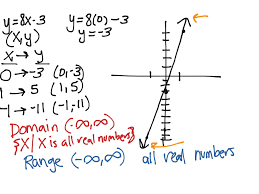 y=8x-3
y=8(0)-3
y=-3
(x,y)
x → y
0 → -3 (0,-3)
1 → 5 (1,5)
-1 → -11 (-1,-11)
Domain (-∞,∞)
{X/X is all real numbers}
Range (-∞,∞) all real numbers